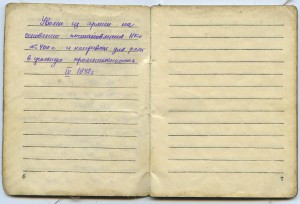 Уволен из армии на
основании постановления НКО
и направлен для работы
в угольную промышленность
IV 1942г
6
7